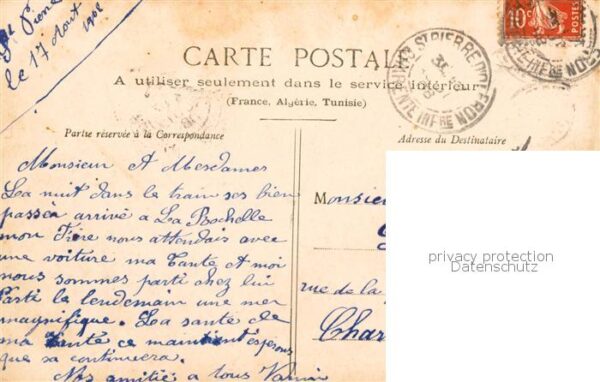 St Pierre
le 17 Aout 1908
10c
POSTES
CARTE POSTALE
A utiliser seulement dans le service intérieur
(France, Algérie, Tunisie)
ST PIERRE D'OLERON
CHARENTE INFRE
Partie réservée à la Correspondance
Adresse du Destinataire
Monsieur et Mesdames
La nuit dans le train ses bien
passéa arrivé a La Rochelle
mon Frère nous attendais avec
une voiture ma Tante et moi
nous sommes parti chez lui
Parti le lendemain une mer
magnifique. La sante de
ma Tante ce maintient éspérons
que sa continuera.
Nos amitié a tous
Monsieur
rue de la
Char
privacy protection
Datenschutz